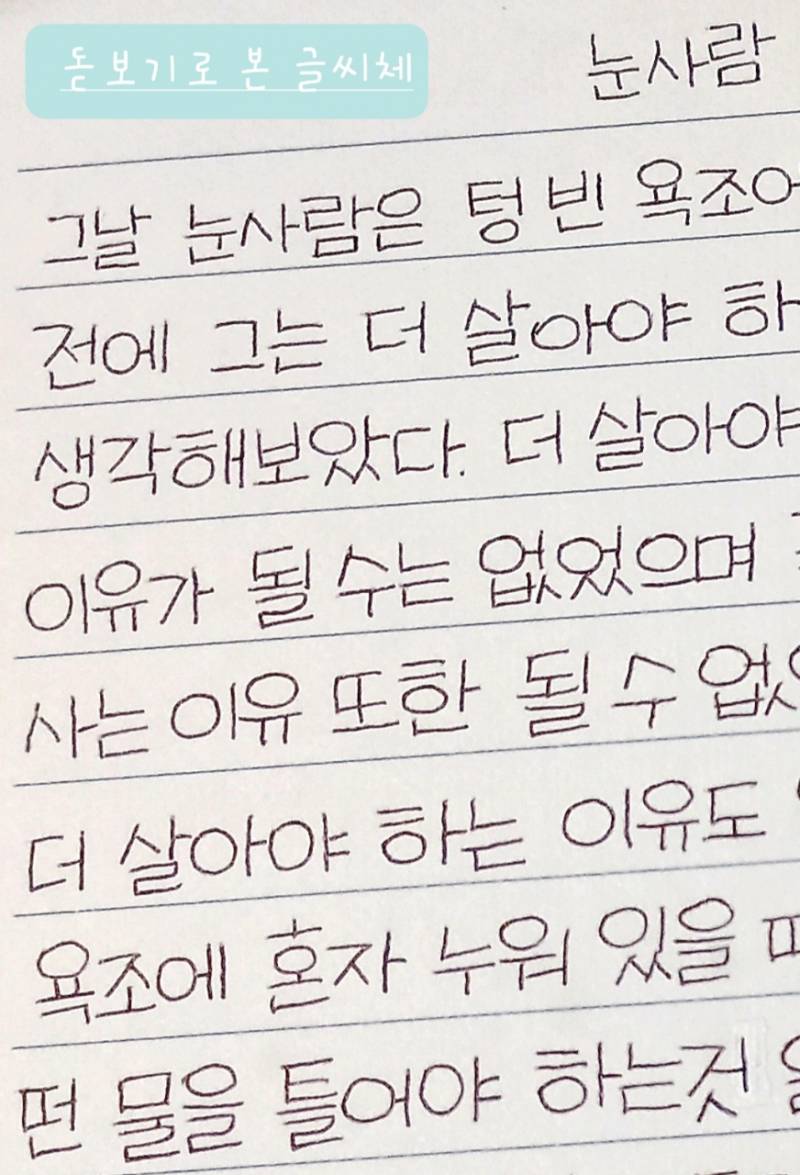 돋보기로 본 글씨체
눈사람
그날 눈사람은 텅 빈 욕조에
전에 그는 더 살아야 하
생각해보았다. 더 살아야
이유가 될 수는 없었으며
사는 이유 또한 될 수 없
더 살아야 하는 이유도
욕조에 혼자 누워 있을 때
떤 물을 틀어야 하는것